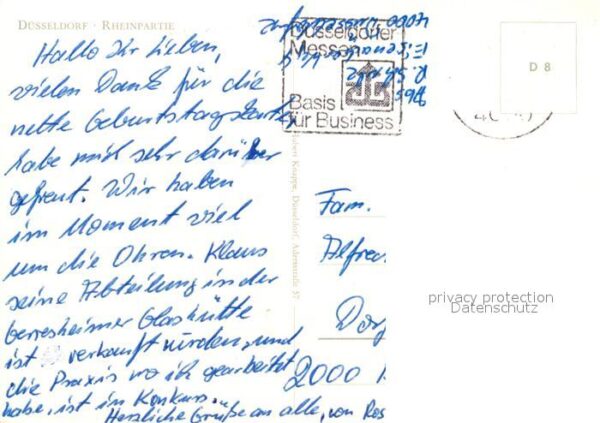 DÜSSELDORF · RHEINPARTIE
Hallo Ihr Lieben,
vielen Dank für die
nette Geburtstagskarte
habe mich sehr darüber
gefreut. Wir haben
im Moment viel
um die Ohren. Klaus
seine Abteilung in der
Gerresheimer Glashütte
ist verkauft worden, und
die Praxis wo ich gearbeitet
habe, ist im Konkurs.
Herzliche Grüße an alle, von Ros
Abs.
R. Schulz
4000 Düsseldorf
Düsseldorfer
Messen
Basis
für Business
D 8
Düsseldorf, Adersstraße 57
Fam.
Alfred
Dorf
2000
privacy protection
Datenschutz